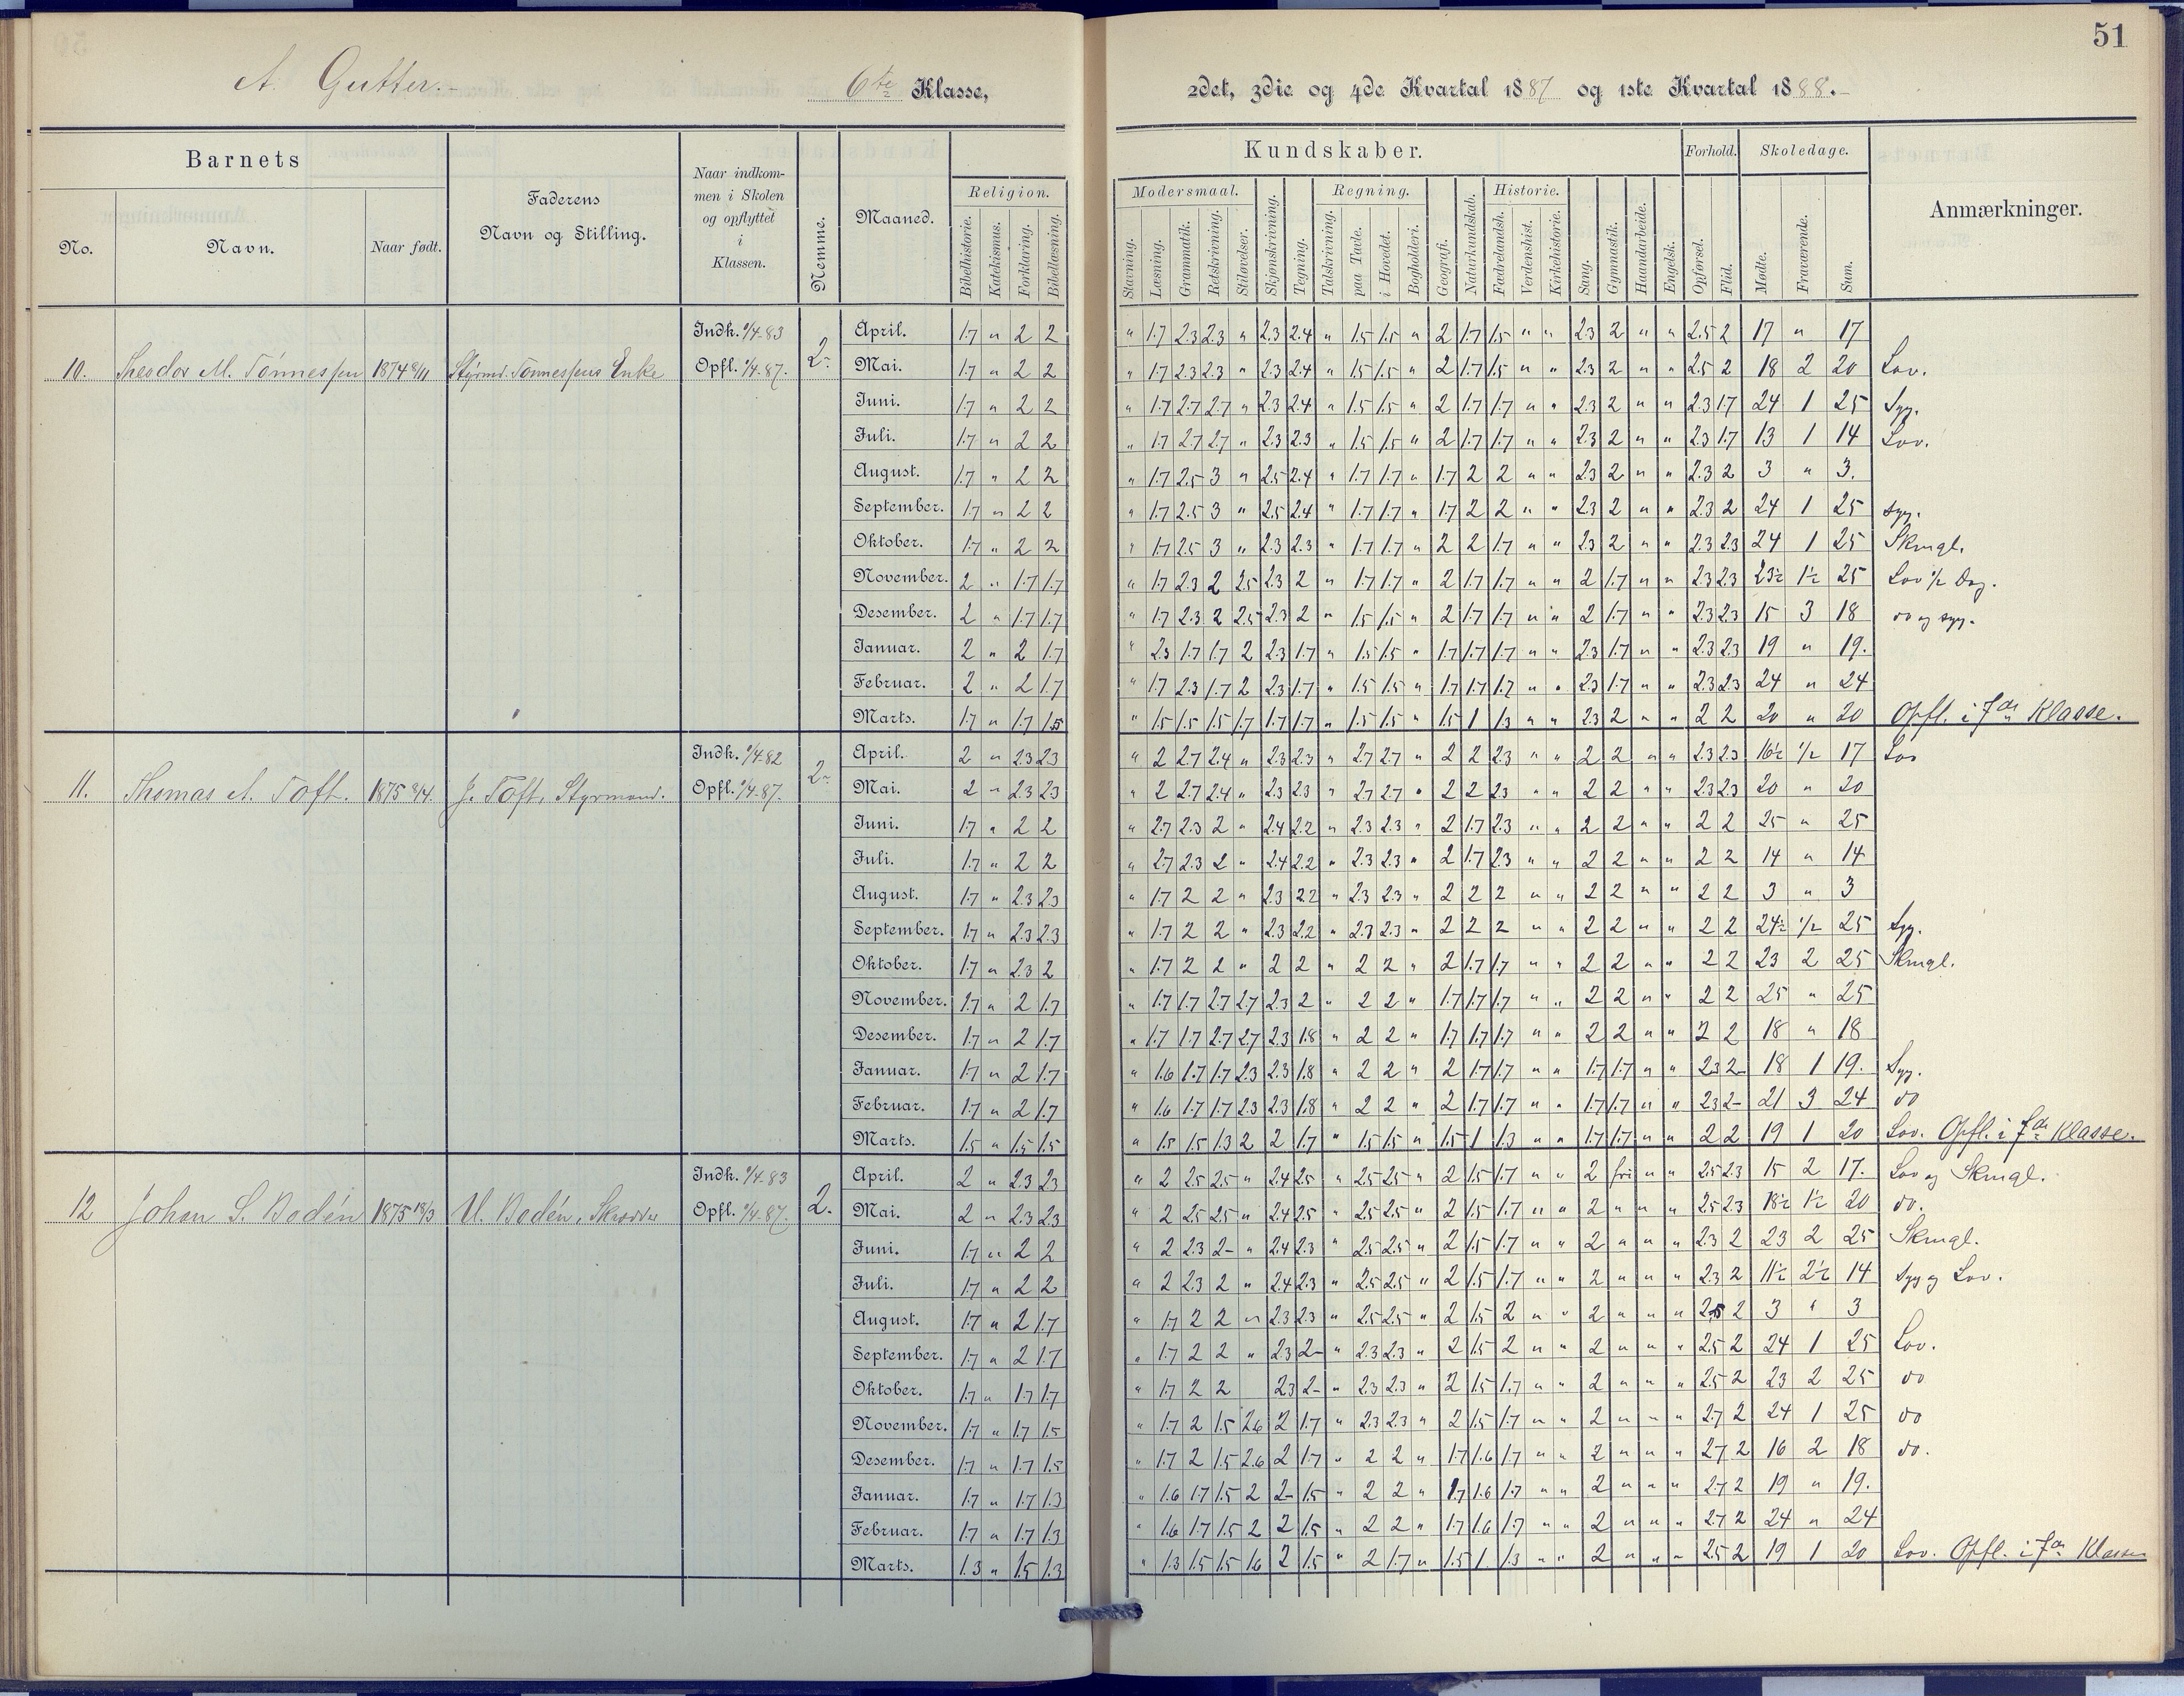 51
A. Gutter. 6te Klasse, 2det, 3die og 4de Kvartal 1887 og 1ste Kvartal 1888.
Barnets
No.
Navn.
Naar født.
Faderens
Navn og Stilling.
Naar indkom-
men i Skolen
og opflyttet
i
Klassen.
Nemme.
Maaned.
Religion.
Bibelhistorie.
Katekismus.
Forklaring.
Bibellæsning.
Kundskaber.
Modersmaal.
Stavning.
Læsning.
Grammatik.
Retskrivning.
Stiløvelser.
Skjønskrivning.
Tegning.
Regning.
Talskrivning.
paa Tavle.
i Hovedet.
Bogholderi.
Geografi.
Naturkundskab.
Historie.
Fædrelandsh.
Verdenshist.
Kirkehistorie.
Sang.
Gymnastik.
Haandarbeide.
Engelsk.
Forhold.
Opførsel.
Flid.
Skoledage.
Mødte.
Fraværende.
Sum.
Anmærkninger.
10. Theodor M. Tönnessen 1874 8/11 Styrmd. Tönnessens Enke Indk. 1/4-83 Opfl. 1/4-87. 2
April. 1.7 " 2 2 " 1.7 2.3 2.3 " 2.3 2.4 " 1.5 1.5 " 2 1.7 1.5 " " 2.3 2 " " 2.5 2 17 " 17
Mai. 1.7 " 2 2 " 1.7 2.3 2.3 " 2.3 2.4 " 1.5 1.5 " 2 1.7 1.5 " " 2.3 2 " " 2.5 2 18 2 20 Lov.
Juni. 1.7 " 2 2 " 1.7 2.7 2.7 " 2.3 2.4 " 1.5 1.5 " 2 1.7 1.7 " " 2.3 2 " " 2.3 1.7 24 1 25 Syg.
Juli. 1.7 " 2 2 " 1.7 2.7 2.7 " 2.3 2.3 " 1.5 1.5 " 2 1.7 1.7 " " 2.3 2 " " 2.3 1.7 13 1 14 Lov.
August. 1.7 " 2 2 " 1.7 2.5 3 " 2.5 2.4 " 1.7 1.7 " 1.7 2 2 " " 2.3 2 " " 2.3 2 3 " 3.
September. 1.7 " 2 2 " 1.7 2.5 3 " 2.5 2.4 " 1.7 1.7 " 1.7 2 2 " " 2.3 2 " " 2.3 2 24 1 25 syg.
Oktober. 1.7 " 2 2 " 1.7 2.5 3 " 2.3 2.3 " 1.7 1.7 " 2 2 1.7 " " 2.3 2 " " 2.3 2.3 24 1 25 Skmgl.
November. 2 " 1.7 1.7 " 1.7 2.3 2 2.5 2.3 2 " 1.7 1.7 " 2 1.7 1.7 " " 2 1.7 " " 2.3 2.3 23½ 1½ 25 Lov ½ Dag.
Desember. 2 " 1.7 1.7 " 1.7 2.3 2 2.5 2.3 2 " 1.5 1.5 " 2 1.7 1.7 " " 2 1.7 " " 2.3 2.3 15 3 18 do og syg.
Januar. 2 " 2 1.7 " 2.3 1.7 1.7 2 2.3 1.7 " 1.5 1.5 " 1.7 1.7 1.7 " " 2.3 1.7 " " 2.3 2.3 19 " 19.
Februar. 2 " 2 1.7 " 1.7 2.3 1.7 2 2.3 1.7 " 1.5 1.5 " 1.7 1.7 1.7 " " 2.3 1.7 " " 2.3 2.3 24 " 24
Marts. 1.7 " 1.7 1.5 " 1.5 1.5 1.5 1.7 1.7 1.7 " 1.5 1.5 " 1.5 1 1.3 " " 2.3 2 " " 2 2 20 " 20 Opfl. i 7de Klasse.
11. Thomas A. Toft. 1875 2/4. J. Toft, Styrmand. Indk. 1/4-82 Opfl. 1/4-87. 2
April. 2 " 2.3 2.3 " 2 2.7 2.4 " 2.3 2.3 " 2.7 2.7 " 2 2 2.3 " " 2 2 " " 2.3 2.3 16½ ½ 17 Lov
Mai. 2 " 2.3 2.3 " 2 2.7 2.4 " 2.3 2.3 " 2.7 2.7 " 2 2 2.3 " " 2 2 " " 2.3 2.3 20 " 20
Juni. 1.7 " 2 2 " 2.7 2.3 2 " 2.4 2.2 " 2.3 2.3 " 2 1.7 2.3 " " 2 2 " " 2 2 25 " 25
Juli. 1.7 " 2 2 " 2.7 2.3 2 " 2.4 2.2 " 2.3 2.3 " 2 1.7 2.3 " " 2 2 " " 2 2 14 " 14
August. 1.7 " 2.3 2.3 " 1.7 2 2 " 2.3 2.2 " 2.3 2.3 " 2 2 2 " " 2 2 " " 2 2 3 " 3
September. 1.7 " 2.3 2.3 " 1.7 2 2 " 2.3 2.2 " 2.3 2.3 " 2 2 2 " " 2 2 " " 2 2 24½ ½ 25 Syg.
Oktober. 1.7 " 2.3 2 " 1.7 2 2 " 2 2 " 2 2 " 2 1.7 1.7 " " 2 2 " " 2 2 23 2 25 Skmgl.
November. 1.7 " 2 1.7 " 1.7 1.7 2.7 2.7 2.3 2 " 2 2 " 1.7 1.7 1.7 " " 2 2 " " 2 2 25 " 25
Desember. 1.7 " 2 1.7 " 1.7 1.7 2.7 2.7 2.3 1.8 " 2 2 " 1.7 1.7 1.7 " " 2 2 " " 2 2 18 " 18
Januar. 1.7 " 2 1.7 " 1.6 1.7 1.7 2.3 2.3 1.8 " 2 2 " 2 1.7 1.7 " " 1.7 1.7 " " 2.3 2 18 1 19. Syg.
Februar. 1.7 " 2 1.7 " 1.6 1.7 1.7 2.3 2.3 1.8 " 2 2 " 2 1.7 1.7 " " 1.7 1.7 " " 2.3 2 21 3 24 do
Marts. 1.5 " 1.5 1.5 " 1.5 1.5 1.3 2 2 1.7 " 1.5 1.5 " 1.5 1 1.3 " " 1.7 1.7 " " 2 2 19 1 20 Lov. Opfl. i 7de Klasse.
12 Johan S. Bodén 1875 18/3 U. Bodén, Skrædder Indk. 1/4-83 Opfl. 1/4-87. 2.
April. 2 " 2.3 2.3 " 2 2.5 2.5 " 2.4 2.5 " 2.5 2.5 " 2 1.5 1.7 " " 2 fri " " 2.5 2.3 15 2 17. Lov og Skmgl.
Mai. 2 " 2.3 2.3 " 2 2.5 2.5 " 2.4 2.5 " 2.5 2.5 " 2 1.5 1.7 " " 2 " " " 2.5 2.3 18½ 1½ 20 do.
Juni. 1.7 " 2 2 " 2 2.3 2 " 2.4 2.3 " 2.5 2.5 " 2 1.5 1.7 " " 2 " " " 2.3 2 23 2 25 Skmgl.
Juli. 1.7 " 2 2 " 2 2.3 2 " 2.4 2.3 " 2.5 2.5 " 2 1.5 1.7 " " 2 " " " 2.3 2 11½ 2½ 14 syg og Lov.
August. 1.7 " 2 1.7 " 1.7 2 2 " 2.3 2.3 " 2.5 2.5 " 2 1.5 2 " " 2 " " " 2.5 2 3 " 3
September. 1.7 " 2 1.7 " 1.7 2 2 " 2.3 2 " 2.3 2.3 " 2 1.5 2 " " 2 " " " 2.5 2 24 1 25 Lov.
Oktober. 1.7 " 1.7 1.7 " 1.7 2 2 2.3 2 " 2.3 2.3 " 2 1.5 1.7 " " 2 " " " 2.5 2 23 2 25 do
November. 1.7 " 1.7 1.5 " 1.7 2 1.5 2.6 2 1.7 " 2.3 2.3 " 2 1.5 1.7 " " 2 " " " 2.7 2 24 1 25 do
Desember. 1.7 " 1.7 1.5 " 1.7 2 1.5 2.6 2 1.7 " 2 2 " 1.7 1.6 1.7 " " 2 " " " 2.7 2 16 2 18 do.
Januar. 1.7 " 1.7 1.3 " 1.6 1.7 1.5 2 2 1.5 " 2 2 " 1.7 1.6 1.7 " " 2 " " " 2.7 2 19 " 19.
Februar. 1.7 " 1.7 1.3 " 1.6 1.7 1.5 2 2 1.5 " 2 2 " 1.7 1.6 1.7 " " 2 " " " 2.7 2 24 " 24
Marts. 1.3 " 1.5 1.3 " 1.3 1.5 1.5 1.6 2 1.5 " 2 1.7 " 1.5 1 1.3 " " 2 " " " 2.5 2 19 1 20 Lov. Opfl. i 7de Klasse